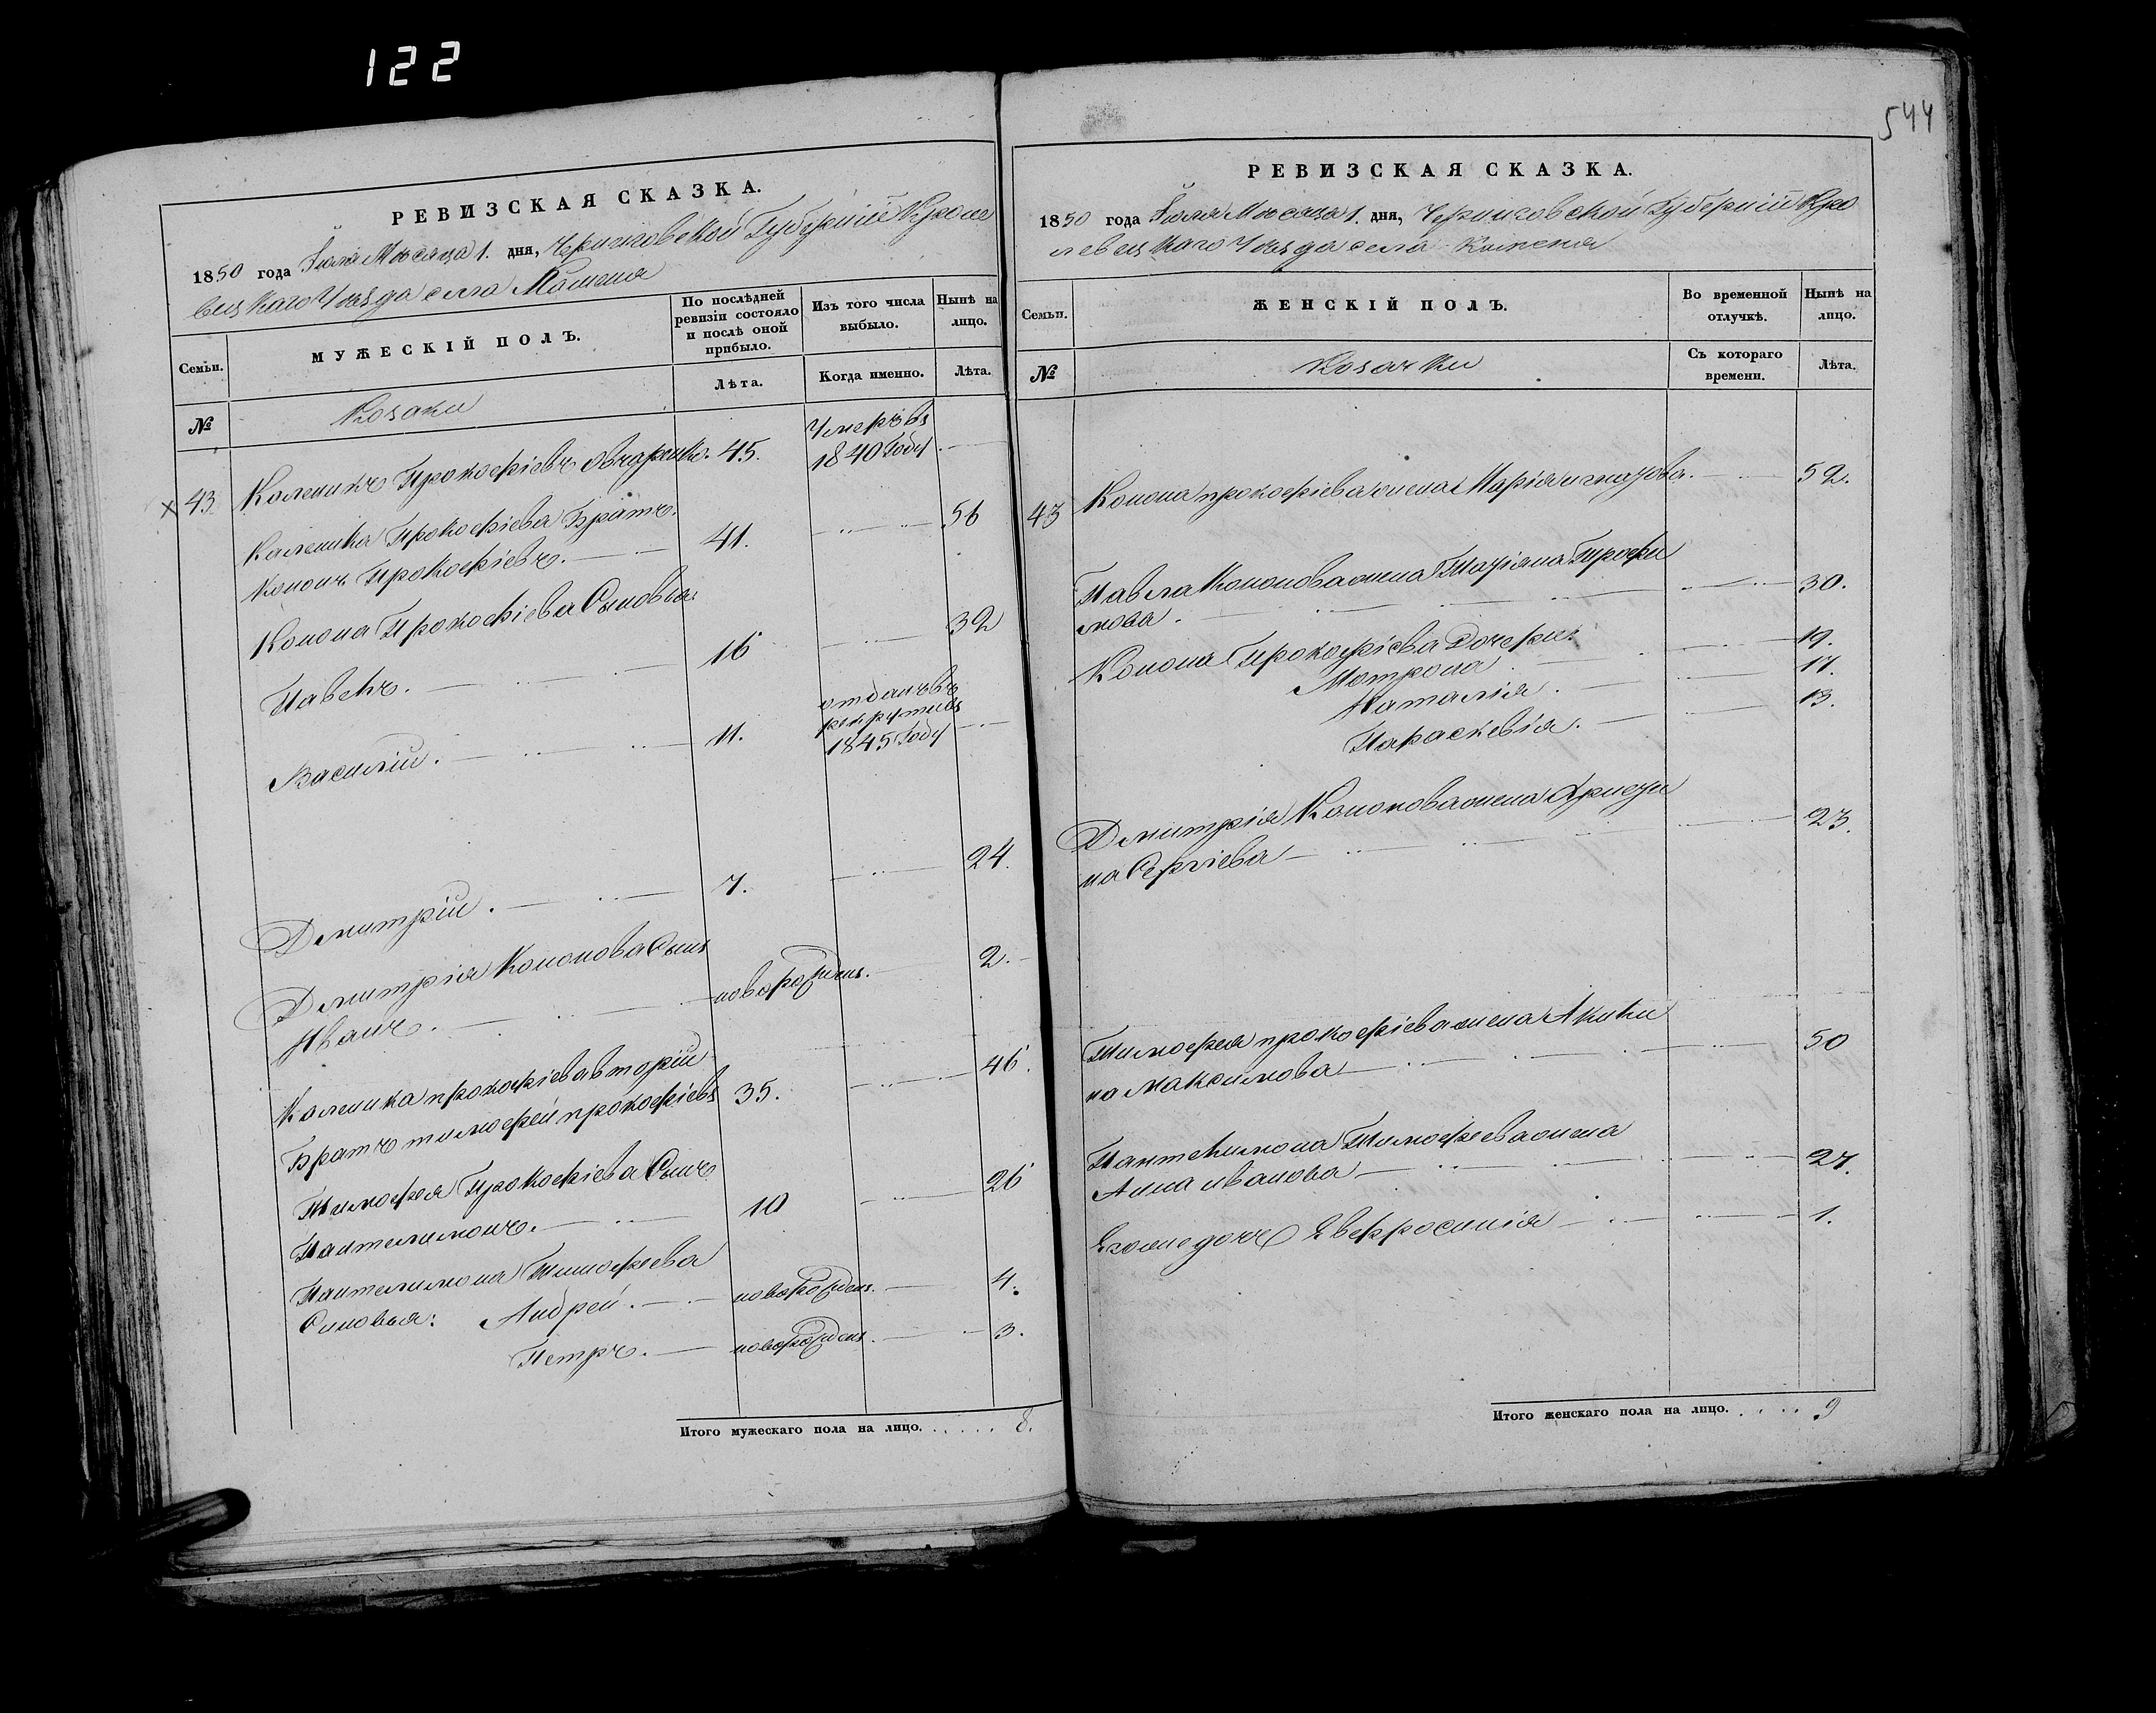 122
РЕВИЗСКАЯ СКАЗКА.
1850 года Іюля Месяца 1. дня, Черниговской Губерніи Кроле
вецкаго Уезда села
Семьи.
МУЖЕСКІЙ ПОЛЪ.
По послѣдней ревизіи состояло и послѣ оной прибыло.
Изъ того числа выбыло.
Нынѣ на лицо.
№
Козаки
Лѣта.
Когда именно.
Лѣта.
х 43 Каленикъ Прокофіевъ Овчаренко. 45. Умеръ въ 1840 Году.
Каленика Прокофіева Братъ
Кононъ Прокофіевъ. 41. 56
Конона Прокофіева Сыновья:
Павелъ. 16 32
Василій. 11. отданъ въ рекруты въ 1845 Году
Дмитрій. 7. 24.
Дмитрія Кононова Сынъ
Иванъ. новорожден. 2.
Каленика прокофіева вторій
Братъ тимофей прокофіевъ 35. 46.
Тимофея Прокофіева Сынъ
Пантелимонъ. 10 26
Пантелимона Тимофеева
Синовья: Андрей. новорожден. 4.
Петръ. новорожден. 3.
Итого мужескаго пола на лицо. . . . . . 8.
544
РЕВИЗСКАЯ СКАЗКА.
1850 года Іюля Месяца 1. дня, Черниговской Губерніи Кро
левецкаго Уезда села
Семьи.
ЖЕНСКІЙ ПОЛЪ.
Во временной отлучкѣ.
Нынѣ на лицо.
№
Козачки
Съ котораго времени.
Лѣта.
43 Конона прокофіева жена Марія 52.
Павла Кононова жена Татіяна Трофи
мова. 30.
Конона Прокофіева Дочери:
Мотрона 19.
Наталія. 17.
Параскевія. 13.
Дмитрія Кононова жена
на Сергіева 23.
Тимофея прокофіева жена Акили
на Максимова 50
Пантелимона Тимофеева жена
Анна иванова 27.
Егоже дочь Евфросинія 1.
Итого женскаго пола на лицо. . . . . 9